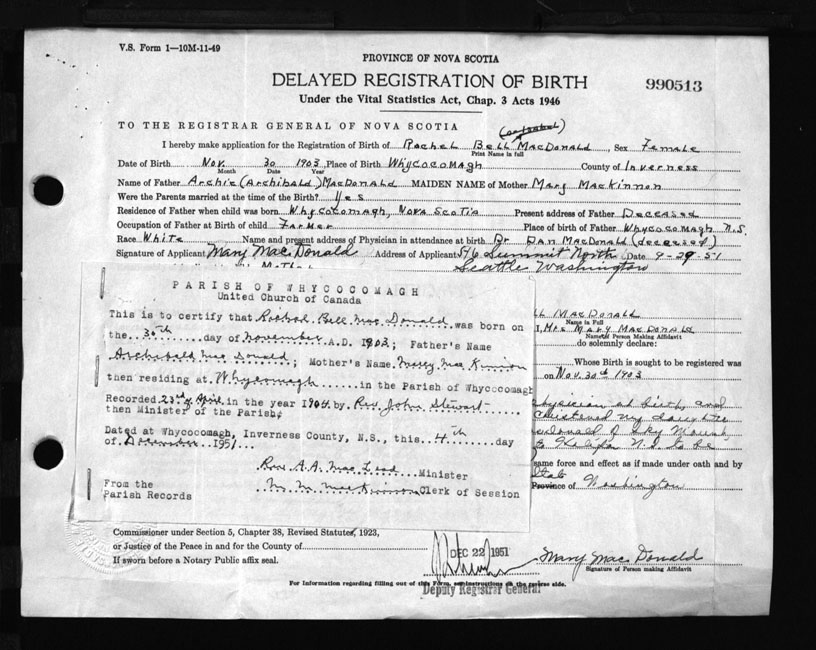 V.S. Form 1—10M-11-49
PROVINCE OF NOVA SCOTIA
DELAYED REGISTRATION OF BIRTH
990513
Under the Vital Statistics Act, Chap. 3 Acts 1946
TO THE REGISTRAR GENERAL OF NOVA SCOTIA
(or Isabel)
I hereby make application for the Registration of Birth of Rachel Bell MacDonald, Sex Female
Print Name in full
Date of Birth Nov. 30 1903 Place of Birth Whycocomagh County of Inverness
Month Date Year
Name of Father Archie (Archibald) MacDonald MAIDEN NAME of Mother Mary MacKinnon
Were the Parents married at the time of the Birth? Yes
Residence of Father when child was born Whycocomagh, Nova Scotia Present address of Father Deceased
Occupation of Father at Birth of child Farmer Place of birth of Father Whycocomagh N.S.
Race White Name and present address of Physician in attendance at birth Dr Dan MacDonald (deceased)
Signature of Applicant Mary MacDonald Address of Applicant 516 Summit North Date 9-29-51
Seattle Washington
PARISH OF WHYCOCOMAGH
United Church of Canada
This is to certify that Rachel Bell Mac Donald was born on
the 30th day of November A.D. 1903; Father's Name
Archibald Mac Donald; Mother's Name Mary Mac Kinnon
then residing at Whycomagh in the Parish of Whycocomagh
Recorded 23rd April in the year 1904 by Rev. John Stewart
then Minister of the Parish.
Dated at Whycocomagh, Inverness County, N.S., this 4th day
of December 1951
Rev. A.A. Mac Leod Minister
From the Parish Records
Mac Kinnon Clerk of Session
ll MacDonald
Name in Full
I, Mrs Mary MacDonald
Name of Person Making Affidavit
do solemnly declare:
Whose Birth is sought to be registered was
on Nov. 30th 1903
physician at birth, and
christened my daughter
same force and effect as if made under oath and by
State
Province of Washington
Commissioner under Section 5, Chapter 38, Revised Statutes, 1923,
or Justice of the Peace in and for the County of
If sworn before a Notary Public affix seal.
DEC 22 1951
Mary Mac Donald
Signature of Person making Affidavit
For Information regarding filling out of this Form, see instructions on the reverse side.
Deputy Registrar General